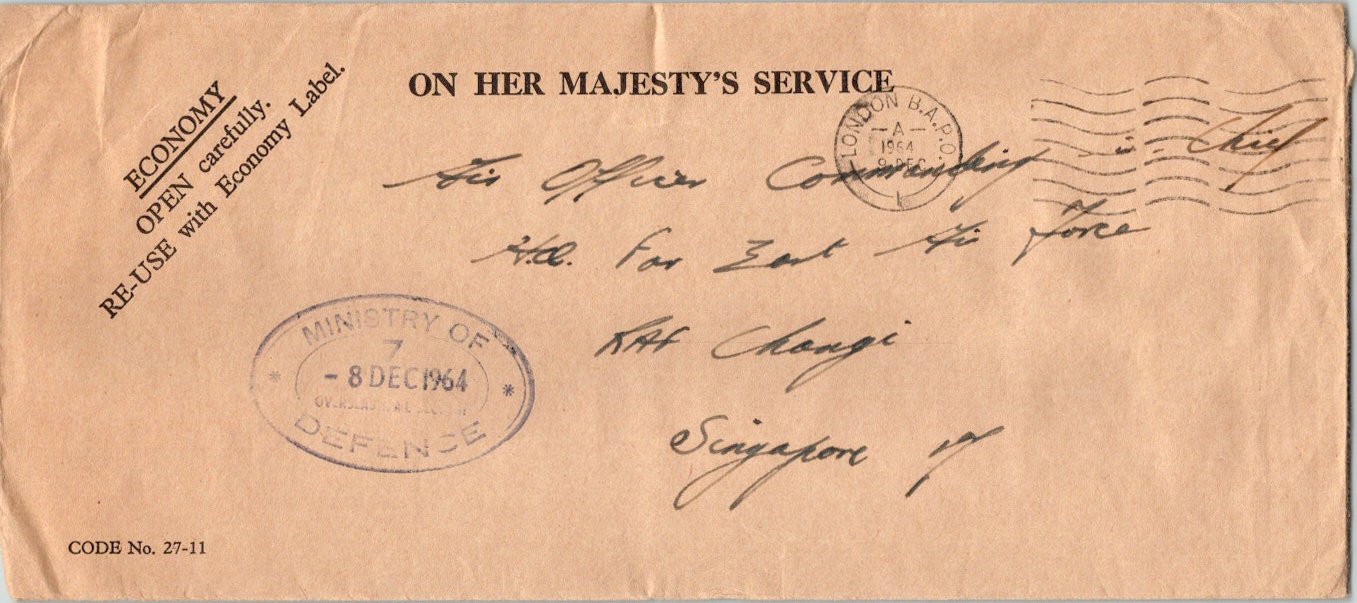 ECONOMY
OPEN carefully.
RE-USE with Economy Label.
ON HER MAJESTY'S SERVICE
LONDON B.A.P.O.
— A —
1964
9 DEC
1
Air Officer Commanding-in-Chief
H.Q. Far East Air Force
RAF Changi
Singapore 17
MINISTRY OF
7
- 8 DEC 1964
DEFENCE
CODE No. 27-11